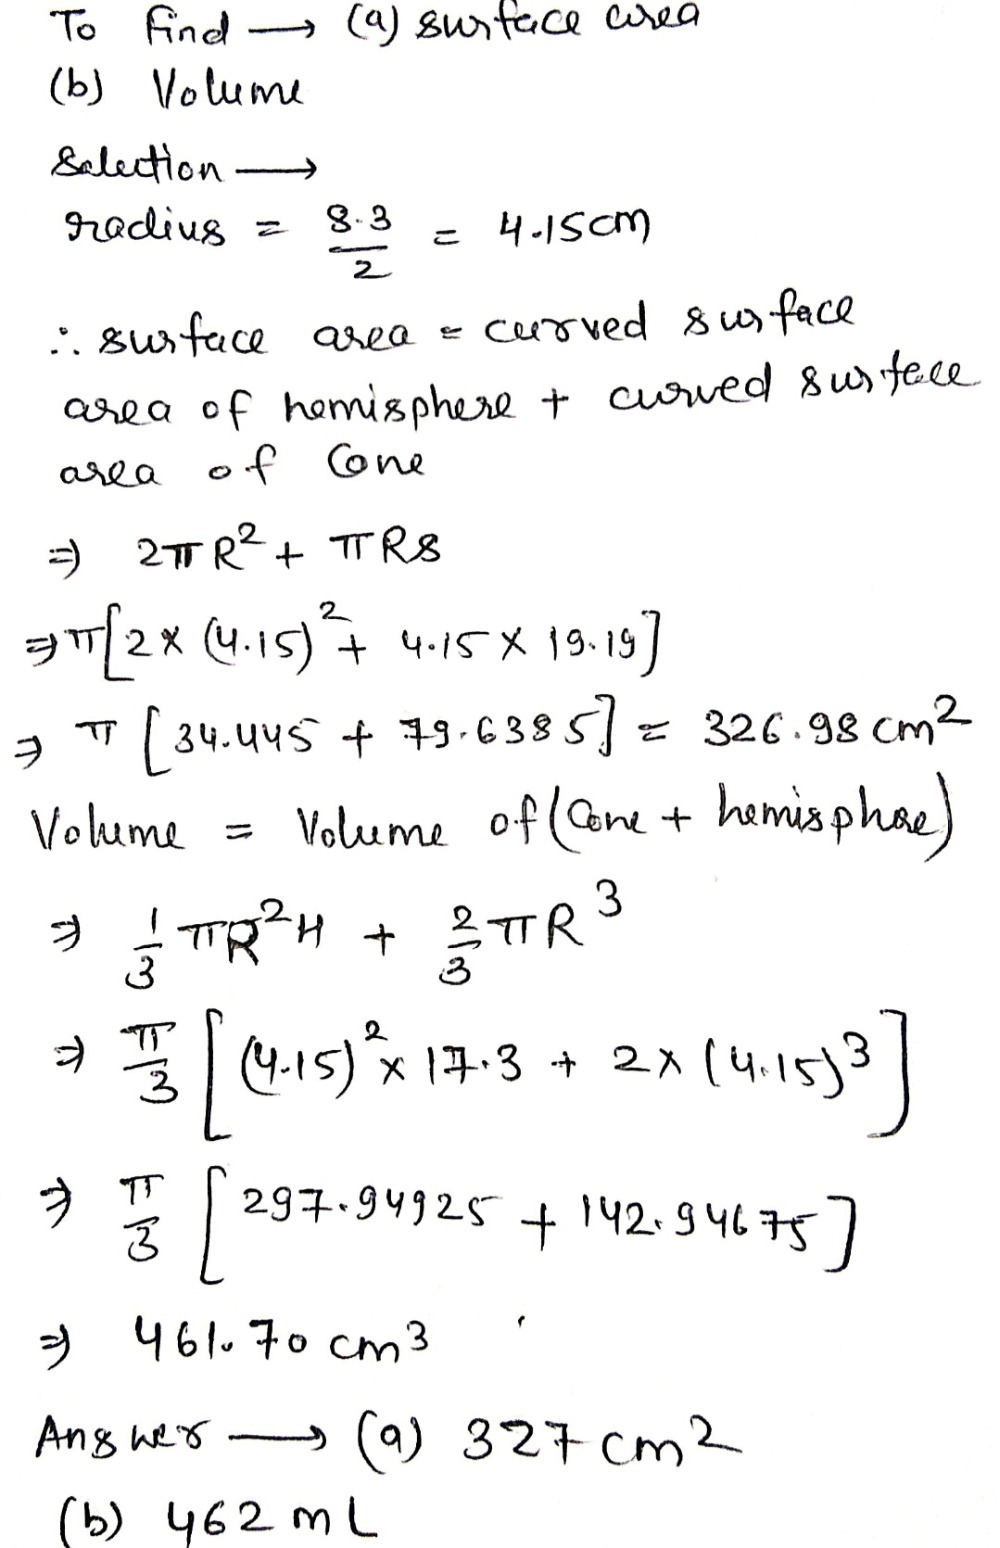 To find → (a) surface area
(b) Volume
Selection →
radius = 8.3/2 = 4.15cm
∴ surface area = curved surface
area of hemisphere + curved surface
area of Cone
⇒ 2πR² + πRs
⇒ π[2×(4.15)² + 4.15 × 19.19]
⇒ π [34.445 + 79.6385] = 326.98 cm²
Volume = Volume of (Cone + hemisphere)
⇒ 1/3 πR²H + 2/3 πR³
⇒ π/3 [(4.15)² × 17.3 + 2×(4.15)³]
⇒ π/3 [297.94925 + 142.94675]
⇒ 461.70 cm³
Answer → (a) 327 cm²
(b) 462 mL